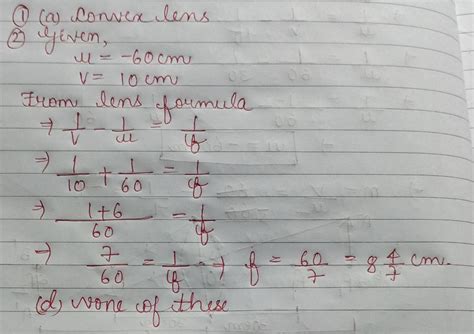 ① (a) Convex lens
② Given,
u = -60cm
v = 10cm
From lens formula
⇒ 1/v - 1/u = 1/f
⇒ 1/10 + 1/60 = 1/f
⇒ 1+6/60 = 1/f
⇒ 7/60 = 1/f → f = 60/7 = 8 4/7 cm.
(d) None of these